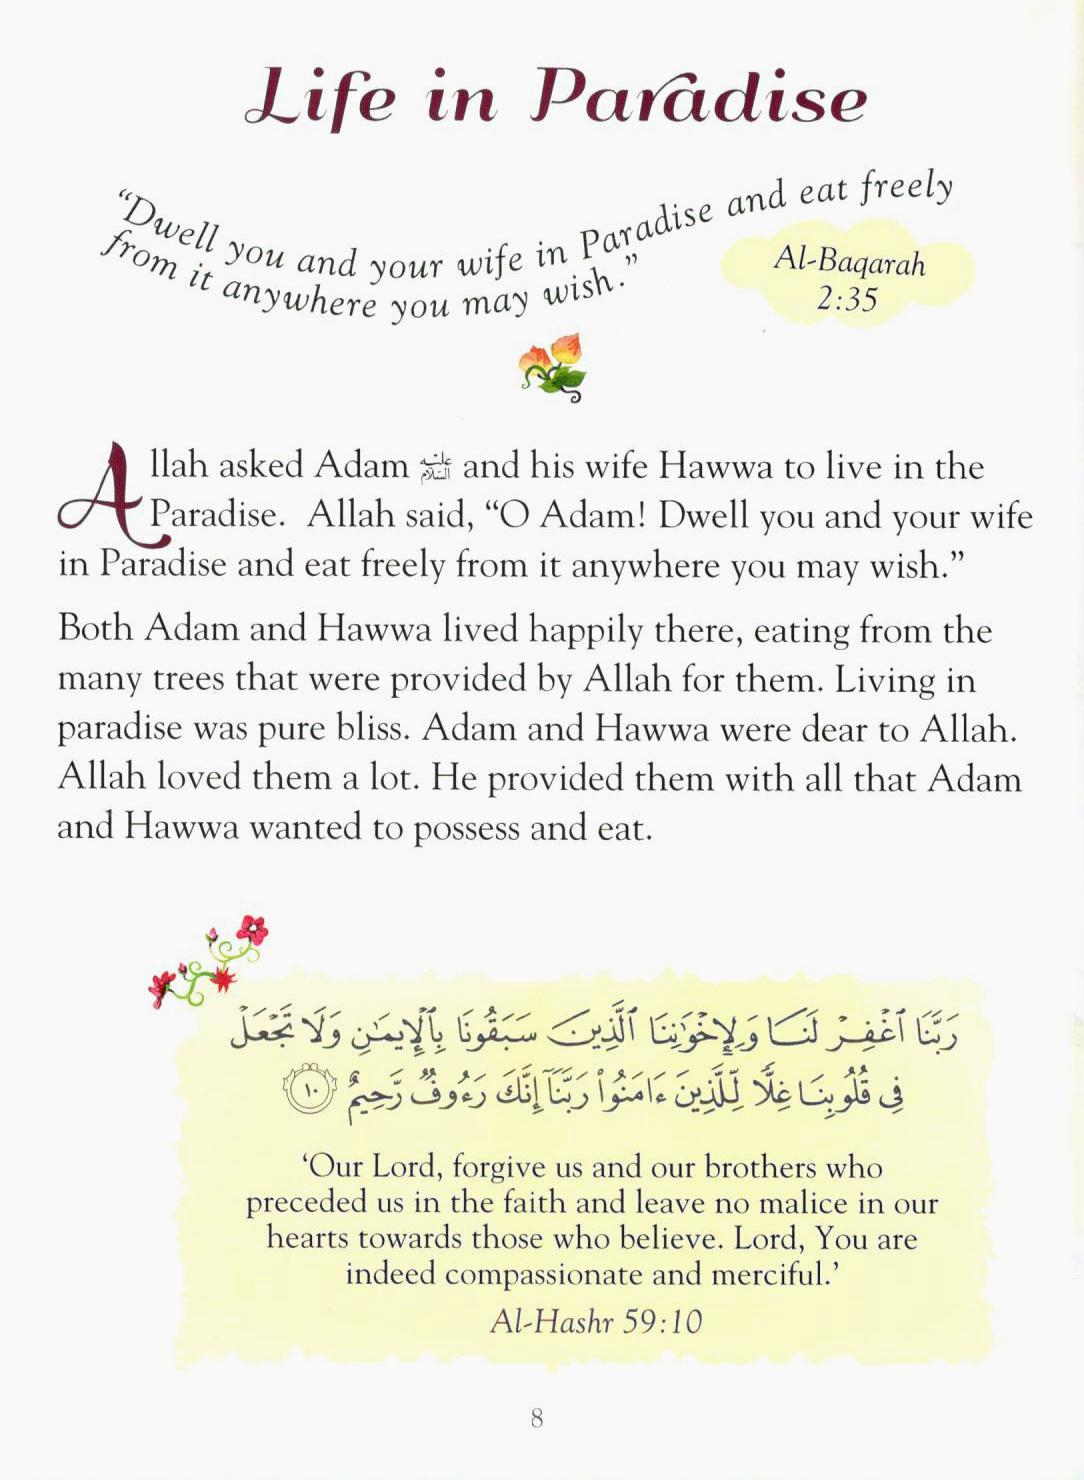 Life in Paradise
“Dwell you and your wife in Paradise and eat freely
from it anywhere you may wish.”
Al-Baqarah
2:35
Allah asked Adam عليه السلام and his wife Hawwa to live in the
Paradise. Allah said, “O Adam! Dwell you and your wife
in Paradise and eat freely from it anywhere you may wish.”
Both Adam and Hawwa lived happily there, eating from the
many trees that were provided by Allah for them. Living in
paradise was pure bliss. Adam and Hawwa were dear to Allah.
Allah loved them a lot. He provided them with all that Adam
and Hawwa wanted to possess and eat.
رَبَّنَا ٱغْفِرْ لَنَا وَلِإِخْوَٰنِنَا ٱلَّذِينَ سَبَقُونَا بِٱلْإِيمَٰنِ وَلَا تَجْعَلْ
فِى قُلُوبِنَا غِلًّا لِّلَّذِينَ ءَامَنُوا۟ رَبَّنَآ إِنَّكَ رَءُوفٌ رَّحِيمٌ ١٠
‘Our Lord, forgive us and our brothers who
preceded us in the faith and leave no malice in our
hearts towards those who believe. Lord, You are
indeed compassionate and merciful.’
Al-Hashr 59:10
8